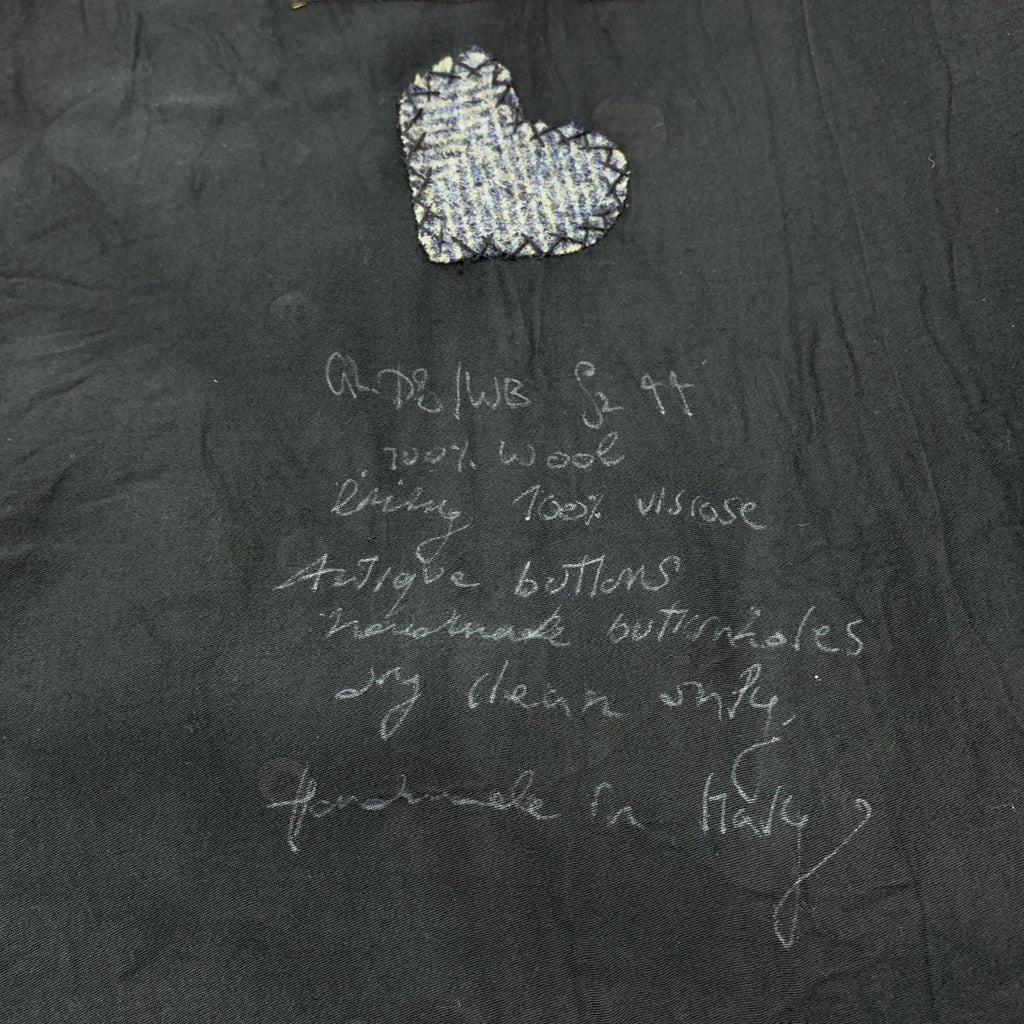 100% wool
lining 100% viscose
Antique buttons
handmade buttonholes
dry clean only
Handmade in Italy